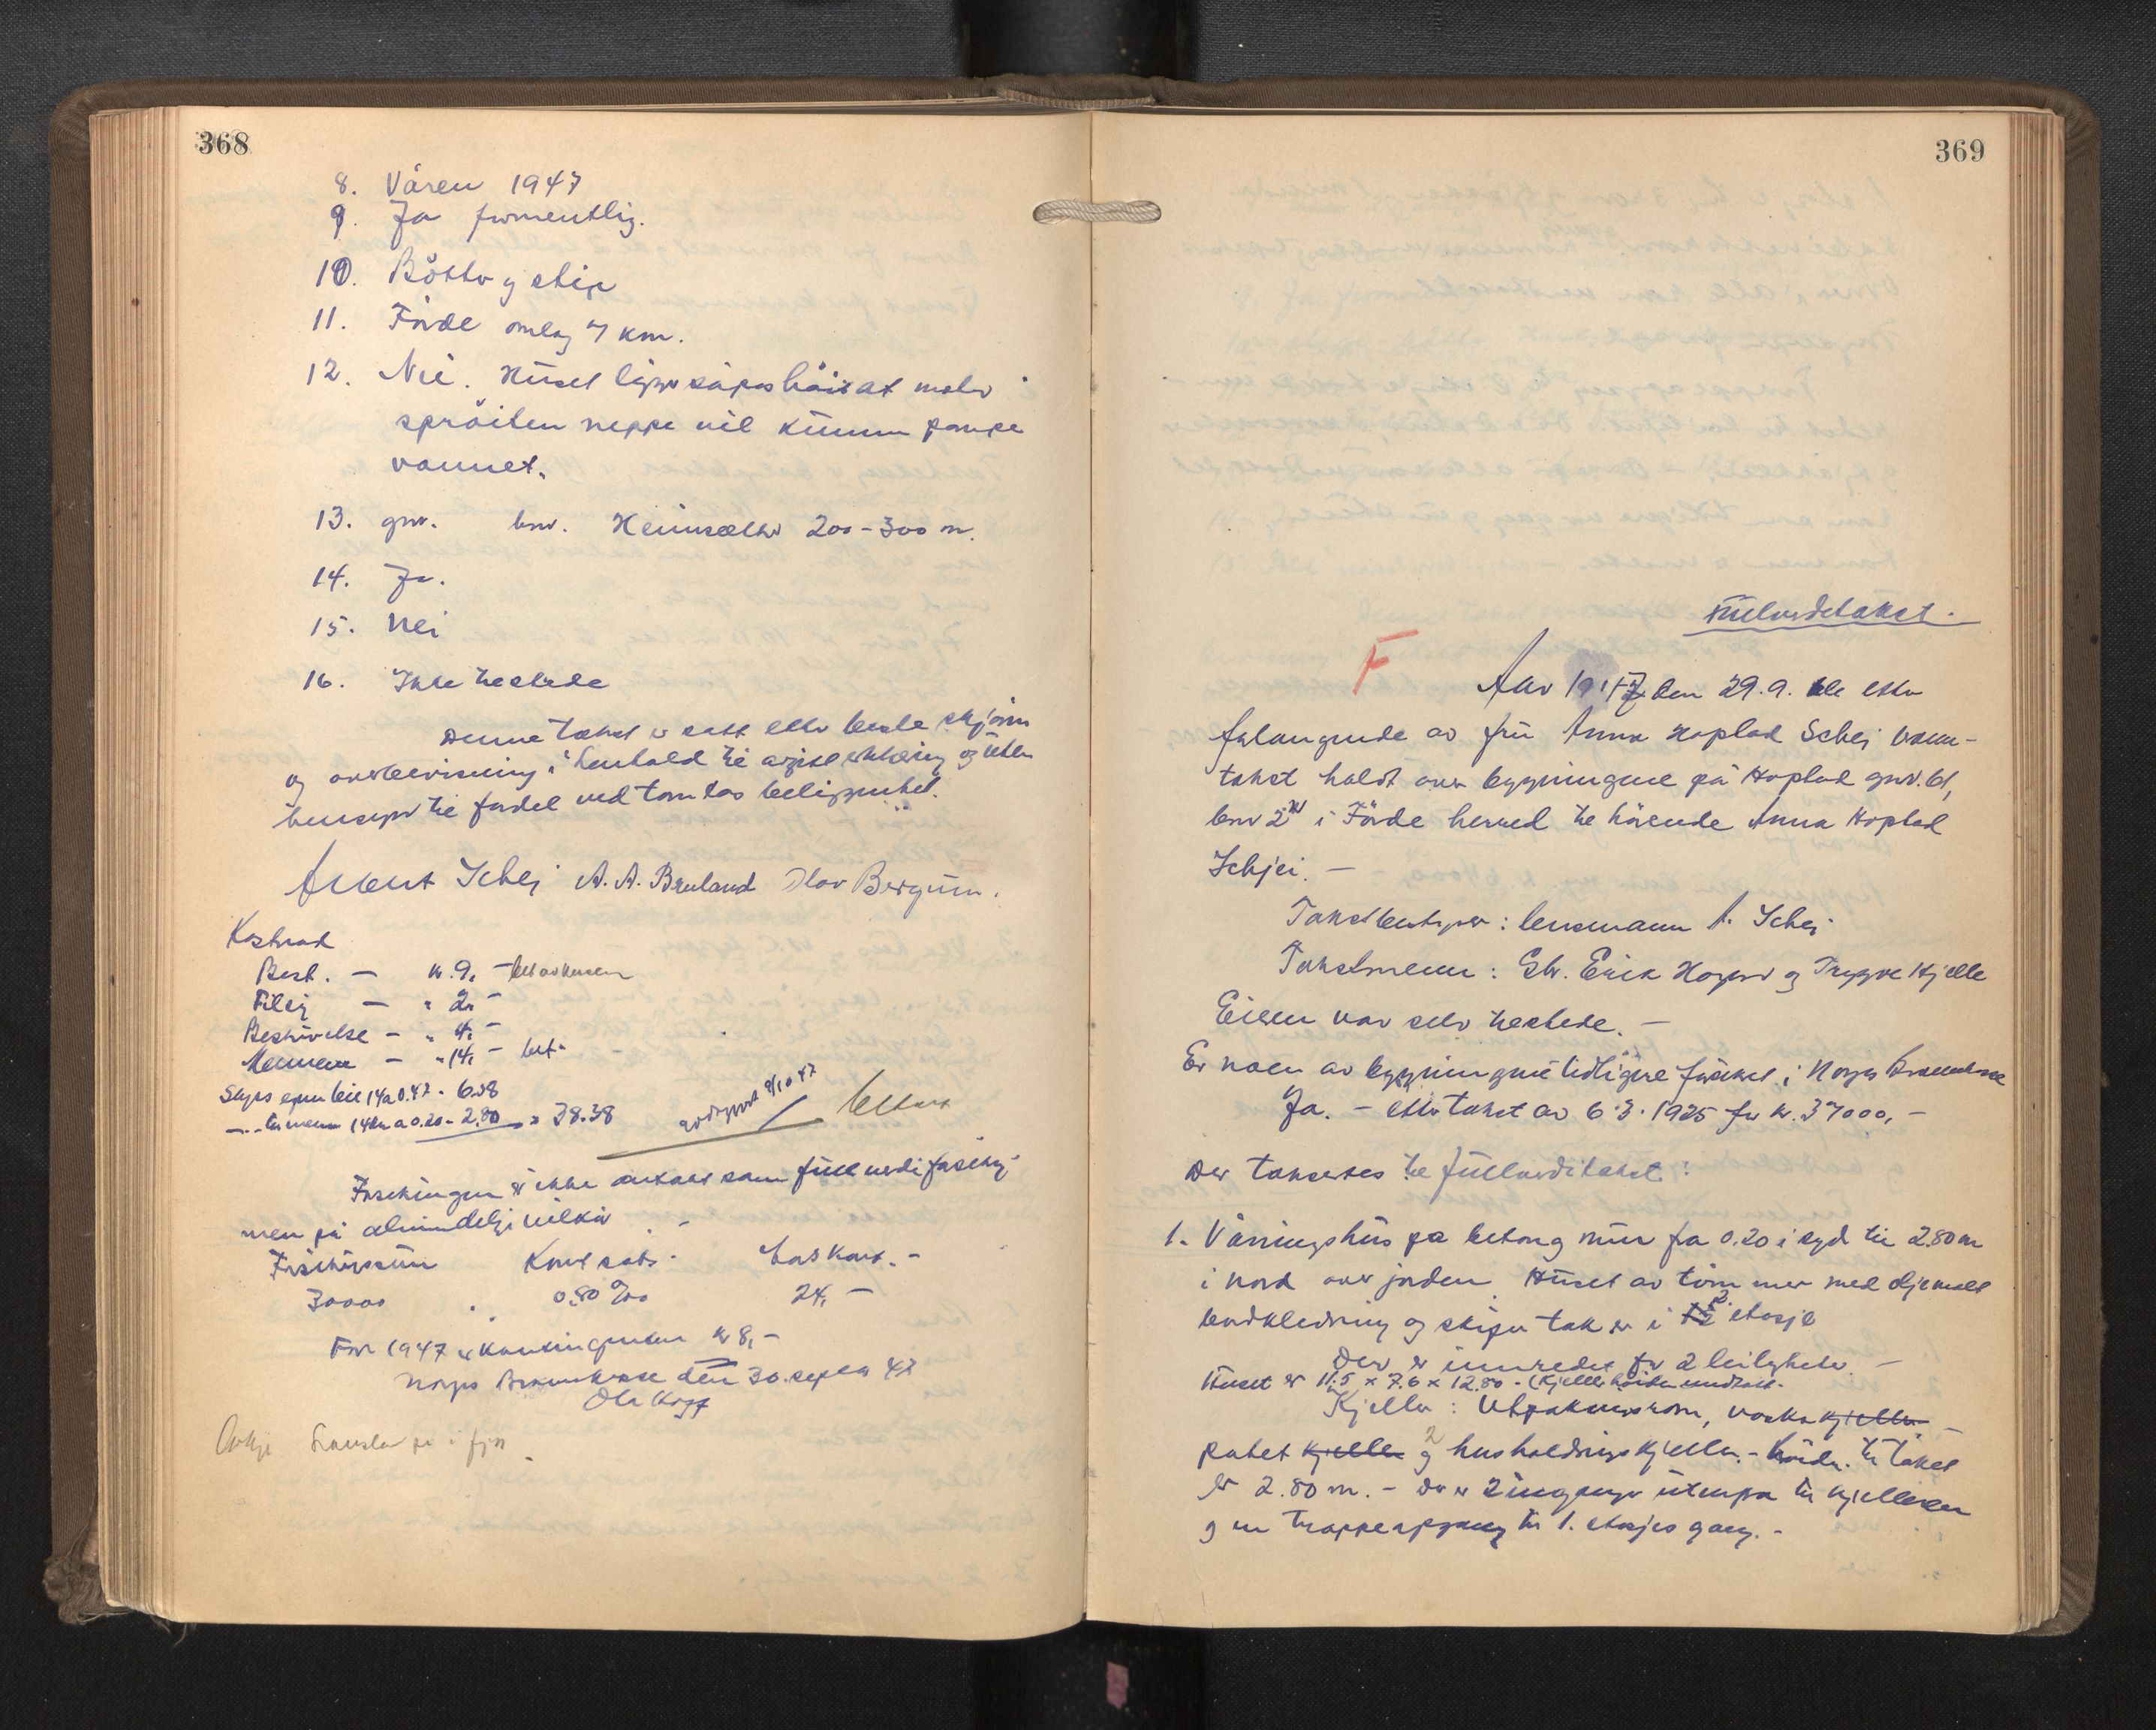 368
8. Våren 1947
9. Ja formentlig.
10. Bötter og stige
11. Förde omlag 7 km.
12. Nei. Huset ligger såpas höit at motor
spröiten neppe vil kunne pumpe
vannet.
13. gnr. bnr. Heimsæter 200-300 m.
14. Ja.
15. Nei
16. Ikke tilstede
Denne takst er satt etter beste skjönn
og overbevisning i henhold til avgitt erklæring og uten
hensyn til fordel ved tomtas beliggenhet.
Schei A. A. Bruland Olav Bergum.
Kostnad
Best. — kr. 9,- bet av kassen
Filing — " 2,-
Beskrivelse — " 4,-
Mennene — " 14,- bet.
Skyss egen bil 14 a 0.47 - 6.58
14 km a 0.20 - 2.80 = 38.38
avdgjort 9/10 47
Forsikringen er ikke antatt som fullverdiforsikring
men på almindelige vilkår. -
Forsikrssum Kont sats. Års kont. -
30000 0,80 ‰ 24,-
For 1947 er kontingenten kr 8,-
Norges Brannkasse den 30. septbr 47
369
Fullverditakst.
F
Aar 1947 den 29.9. ble etter
forlangende av fru Anna Hoplad Schei brann-
takst holdt over bygningene på Hoplad gnr. 61,
bnr 2 i Förde herred tilhörende Anna Hoplad
Schjei. —
Takstbestyrer: lensmann A. Schei
Takstmenn: Gbr. Erik og Trygve Hjelle
Eieren var selv tilstede. —
Er noen av bygningene tidligere forsikret i Norges Brannkasse
Ja. - etter takst av 6.3.1925 for kr. 37000,-
Der takseres til fullverditakst:
1. Våningshus på betong mur fra 0.20 i syd til 2.80 m
i nord over jorden. Huset av tömmer med oljemalt
bordkledning og skifer tak er i 1½ 2 etasje
Der er innredet for 2 leiligheter. —
Huset er 11.5 x 7.6 x 12.80 - (Kjellerhöiden undtatt.
Kjeller: Utpakningsrom, vaske kjeller —
potet kjeller og 2 husholdningskjeller. - Höiden til taket
er 2.80 m. - Der er 2 inganger utenpa til kjelleren
og en trappeopgang til 1. etasjes gang. -